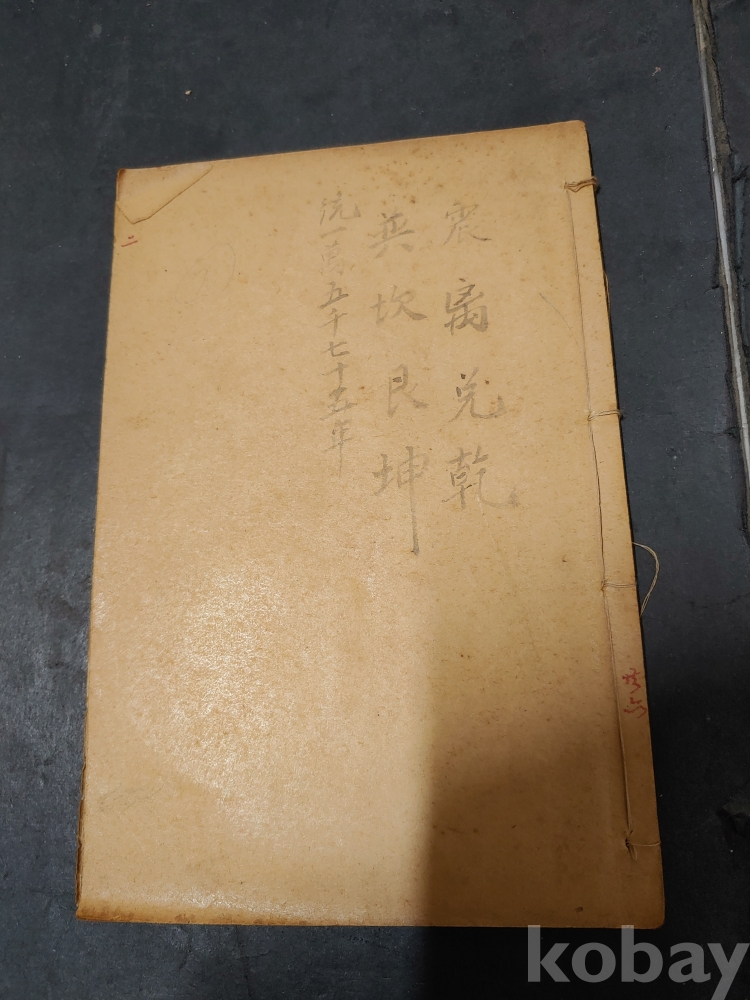 震离兑乾
巽坎艮坤
统一萬五千七十五年
二
kobay